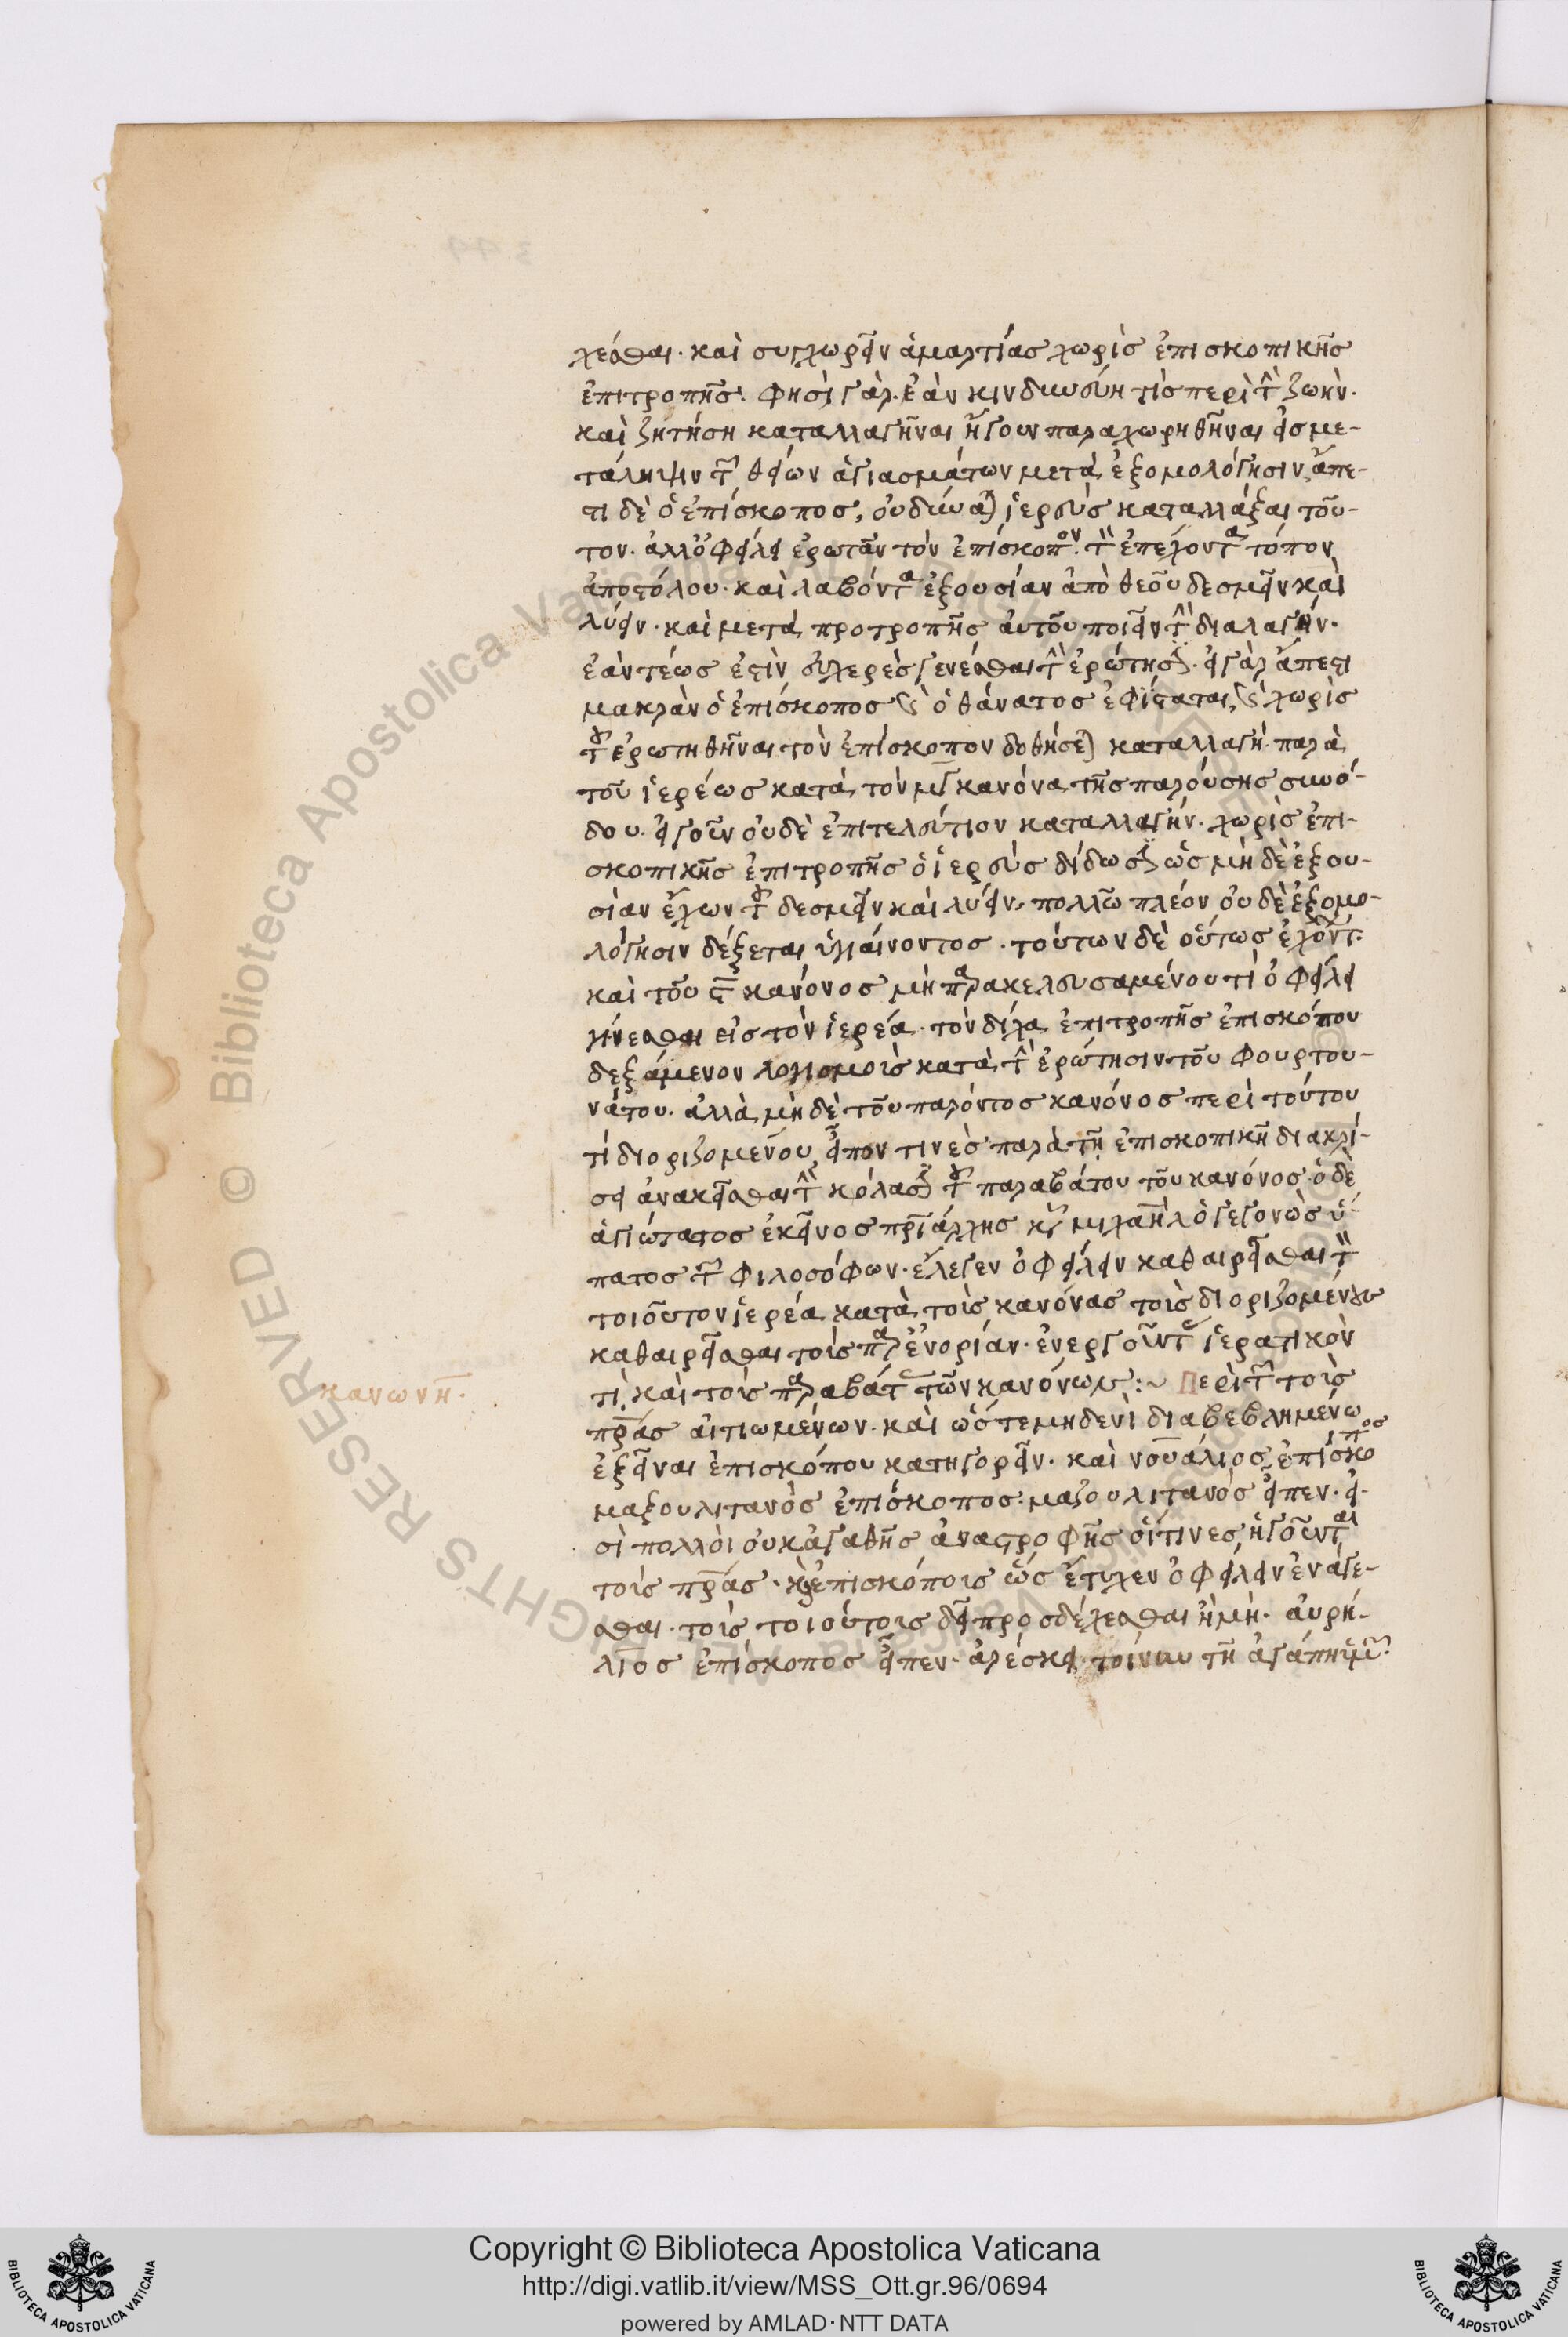 χεσθαι· καὶ συγχωρεῖν ἁμαρτίας χωρὶς ἐπισκοπικῆς
ἐπιτροπῆς· φησὶ γάρ· ἐὰν κινδυνεύη τίς περὶ τ(ὴν) ζωὴν·
καὶ ζητήση καταλλαγῆναι ἤγουν παραχωρηθῆναι εἰς με-
τάληψιν τ(ῶν) θείων ἁγιασμάτων μετὰ ἐξομολόγησιν, ἄπε-
στι δὲ ὁ ἐπίσκοπος, οὐ δύνα(ται) ἱερεὺς καταλλάξαι τοῦ-
τον. ἀλλ' ὀφείλει ἐρωτᾶν τὸν ἐπίσκοπον τ(ὸν) ἐπέχοντα τόπον
ἀποστόλου· καὶ λαβόντα ἐξουσίαν ἀπὸ θεοῦ δεσμεῖν καὶ
λύειν· καὶ μετὰ προτροπῆς αὐτοῦ ποιεῖν τ(ὴν) διαλαγήν·
ἐὰν τέως ἐστὶν εὐχερὲς γενέσθαι τ(ὴν) ἐρώτησ(ιν)· εἰ γὰρ ἄπεστι
μακρὰν ὁ ἐπίσκοπος καὶ ὁ θάνατος ἐφίσταται, καὶ χωρὶς
τ(οῦ) ἐρωτηθῆναι τὸν ἐπίσκοπον δοθήσε(ται) καταλλαγὴ παρὰ
τοῦ ἱερέως κατὰ τὸν μγ κανόνα τῆς παρούσης συνό-
δου· εἰ γοῦν οὐδὲ ἐπιτελεύτιον καταλλαγήν· χωρὶς ἐπι-
σκοπικῆς ἐπιτροπῆς ὁ ἱερεὺς δίδωσ(ιν) ὡς μὴ δὲ ἐξου-
σίαν ἔχων τ(οῦ) δεσμεῖν καὶ λύειν, πολλῶ πλέον οὐδὲ ἐξομο-
λόγησιν δέξεται ὑγιαίνοντος· τούτων δὲ οὕτως ἐχόντ(ων)
καὶ τοῦ ς κανόνος μὴ παρακελευσαμένου τὶ ὀφείλει
γίνεσθαι εἰς τὸν ἱερέα· τὸν δίχα ἐπιτροπῆς ἐπισκόπου
δεξάμενον λογισμοὶς κατὰ τ(ὴν) ἐρώτησιν τοῦ φουρτου-
νάτου· ἀλλὰ μὴ δὲ τοῦ παρόντος κανόνος περὶ τούτου
τί διοριζομένου, εἶπον τινὲς παρὰ τῆ ἐπισκοπικῆ διακρί-
σει ἀνακεῖσθαι τ(ὴν) κόλασ(ιν) τ(οῦ) παραβάτου τοῦ κανόνος· ὁ δὲ
ἁγιώτατος ἐκεῖνος πριάρχης κυρ μιχαὴλ ὁ γεγονὼς ὕ-
πατος τ(ῶν) φιλοσόφων· ἔλεγεν ὀφείλειν καθαιρεῖσθαι τ(ὸν)
τοιοῦτον ἱερέα κατὰ τοὶς κανόνας τοὶς διοριζομένους
καθαιρεῖσθαι τοὶς παρ' ἐνορίαν· ἐνεργοῦντ(ας) ἱερατικὸν
τι καὶ τοὶς παραβάτ(ας) τῶν κανόνων :~ Περὶ τ(ῶν) τοὶς
πρας αἰτιωμένων· καὶ ὥστε μηδενὶ διαβεβλημένω
ἐξεῖναι ἐπισκόπου κατηγορεῖν· καὶ νουάλιος ἐπίσκοπος
μαξουλιτανὸς ἐπίσκοπος· μαζουλιτανὸς εἶπεν· εἰ-
σὶ πολλοὶ οὐκ ἀγαθῆς ἀναστροφῆς οἵτινες ἡγοῦνται
τοὶς πρας· καὶ ἐπισκόποις ὡς ἔτυχεν ὀφείλειν ἐνάγε-
σθαι· τοὶς τοιούτοις δεῖ προσδέχεσθαι ἢ μὴ· αὐρή-
λιος ἐπίσκοπος εἶπεν· ἀρέσκει τοίνυν τῆ ἀγάπη ὑμῶν·
κανων η·
Copyright © Biblioteca Apostolica Vaticana
http://digi.vatlib.it/view/MSS_Ott.gr.96/0694
powered by AMLAD·NTT DATA